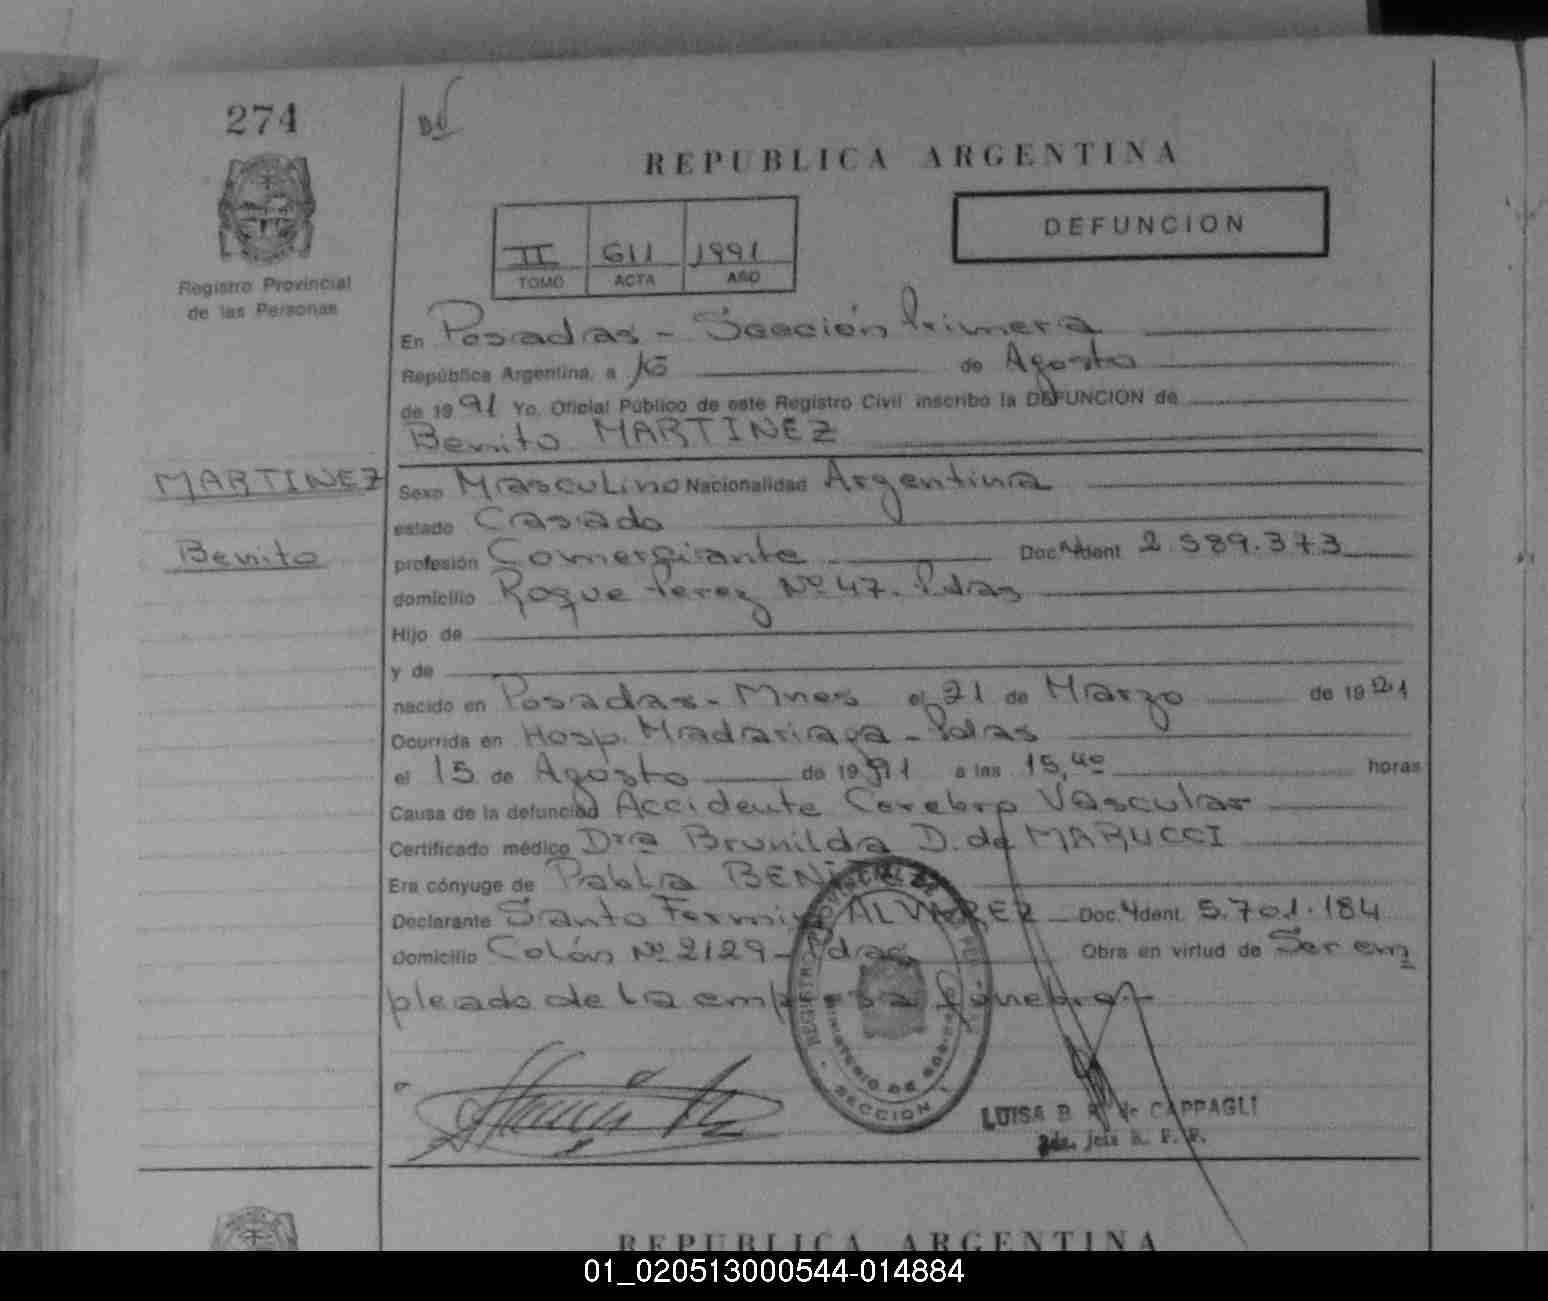 274
REPUBLICA ARGENTINA
DEFUNCION
II 611 1991
TOMO ACTA AÑO
Registro Provincial
de las Personas
En Posadas - Sección Primera
República Argentina, a 16 de Agosto
de 1991 Yo, Oficial Público de este Registro Civil inscribo la DEFUNCION de
Benito MARTINEZ
MARTINEZ
Benito
Sexo Masculino Nacionalidad Argentina
estado Casado
profesión Comerciante Doc. Ident 2.589.373
domicilio Roque Perez Nº 47. Pdas
Hijo de
y de
nacido en Posadas - Mnes el 21 de Marzo de 1921
Ocurrida en Hosp. Madariaga - Pdas
el 15 de Agosto de 1991 a las 15,40 horas
Causa de la defunción Accidente Cerebro Vascular
Certificado médico Dra Brunilda D. de MARUCCI
Era cónyuge de Pabla
Declarante Santo Fermin ALVAREZ Doc. Ident. 5.701.184
Domicilio Colón Nº 2129 - Pdas Obra en virtud de Ser em
pleado de la empresa fúnebre
SECCION 1
LUISA B. de CAPPAGLI
REPUBLICA ARGENTINA
01_020513000544-014884